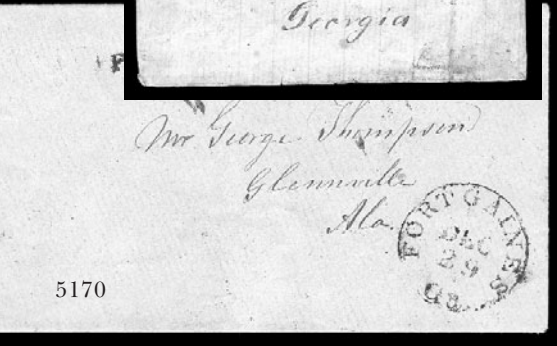 Georgia
Mr George Thompson
Glennville
Ala.
FORT GAINES
DEC
29
Ga
5170